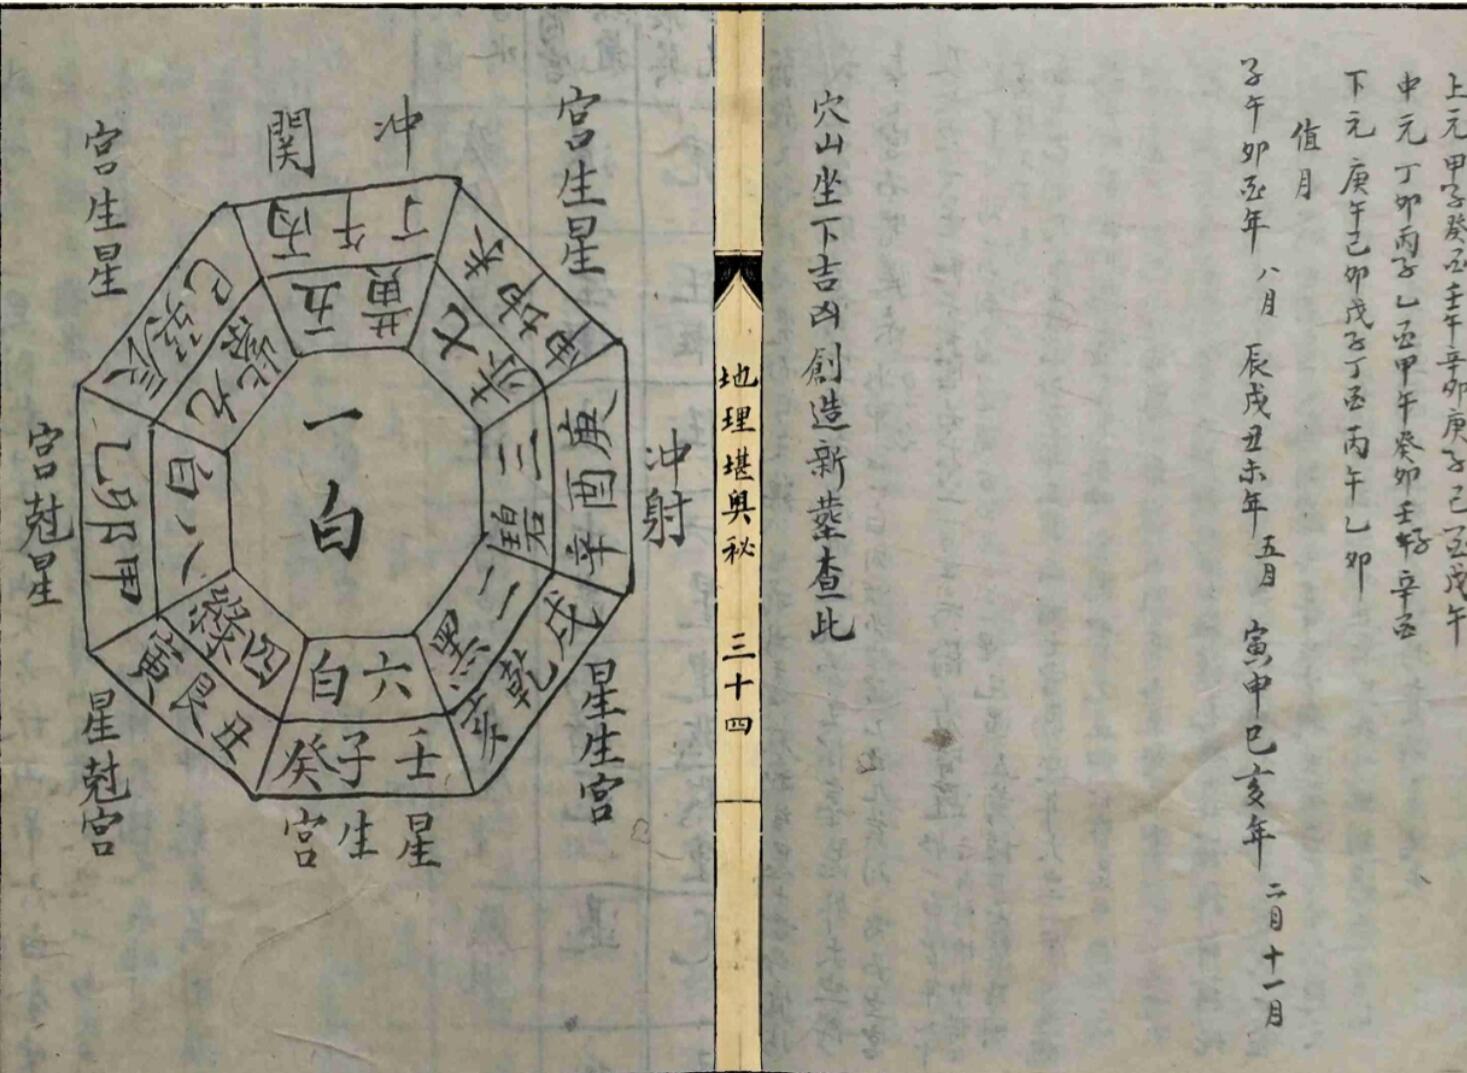 上元甲子癸酉壬午辛卯庚子己酉戊午
中元丁卯丙子乙酉甲午癸卯壬子辛酉
下元庚午己卯戊子丁酉丙午乙卯
值月
子午卯酉年 八月 辰戌丑未年 五月 寅申巳亥年 二月十一月
穴山坐下吉凶創造新塋查此
地理堪輿秘 三十四
宮生星
沖
関
宮生星
宮尅星
星尅宮
宮生星
星生宮
沖射
丁午丙
五黃
未坤申
七赤
庚酉辛
三碧
戌乾亥
二黑
壬子癸
六白
丑艮寅
四綠
甲卯乙
八白
辰巽巳
九紫
一白